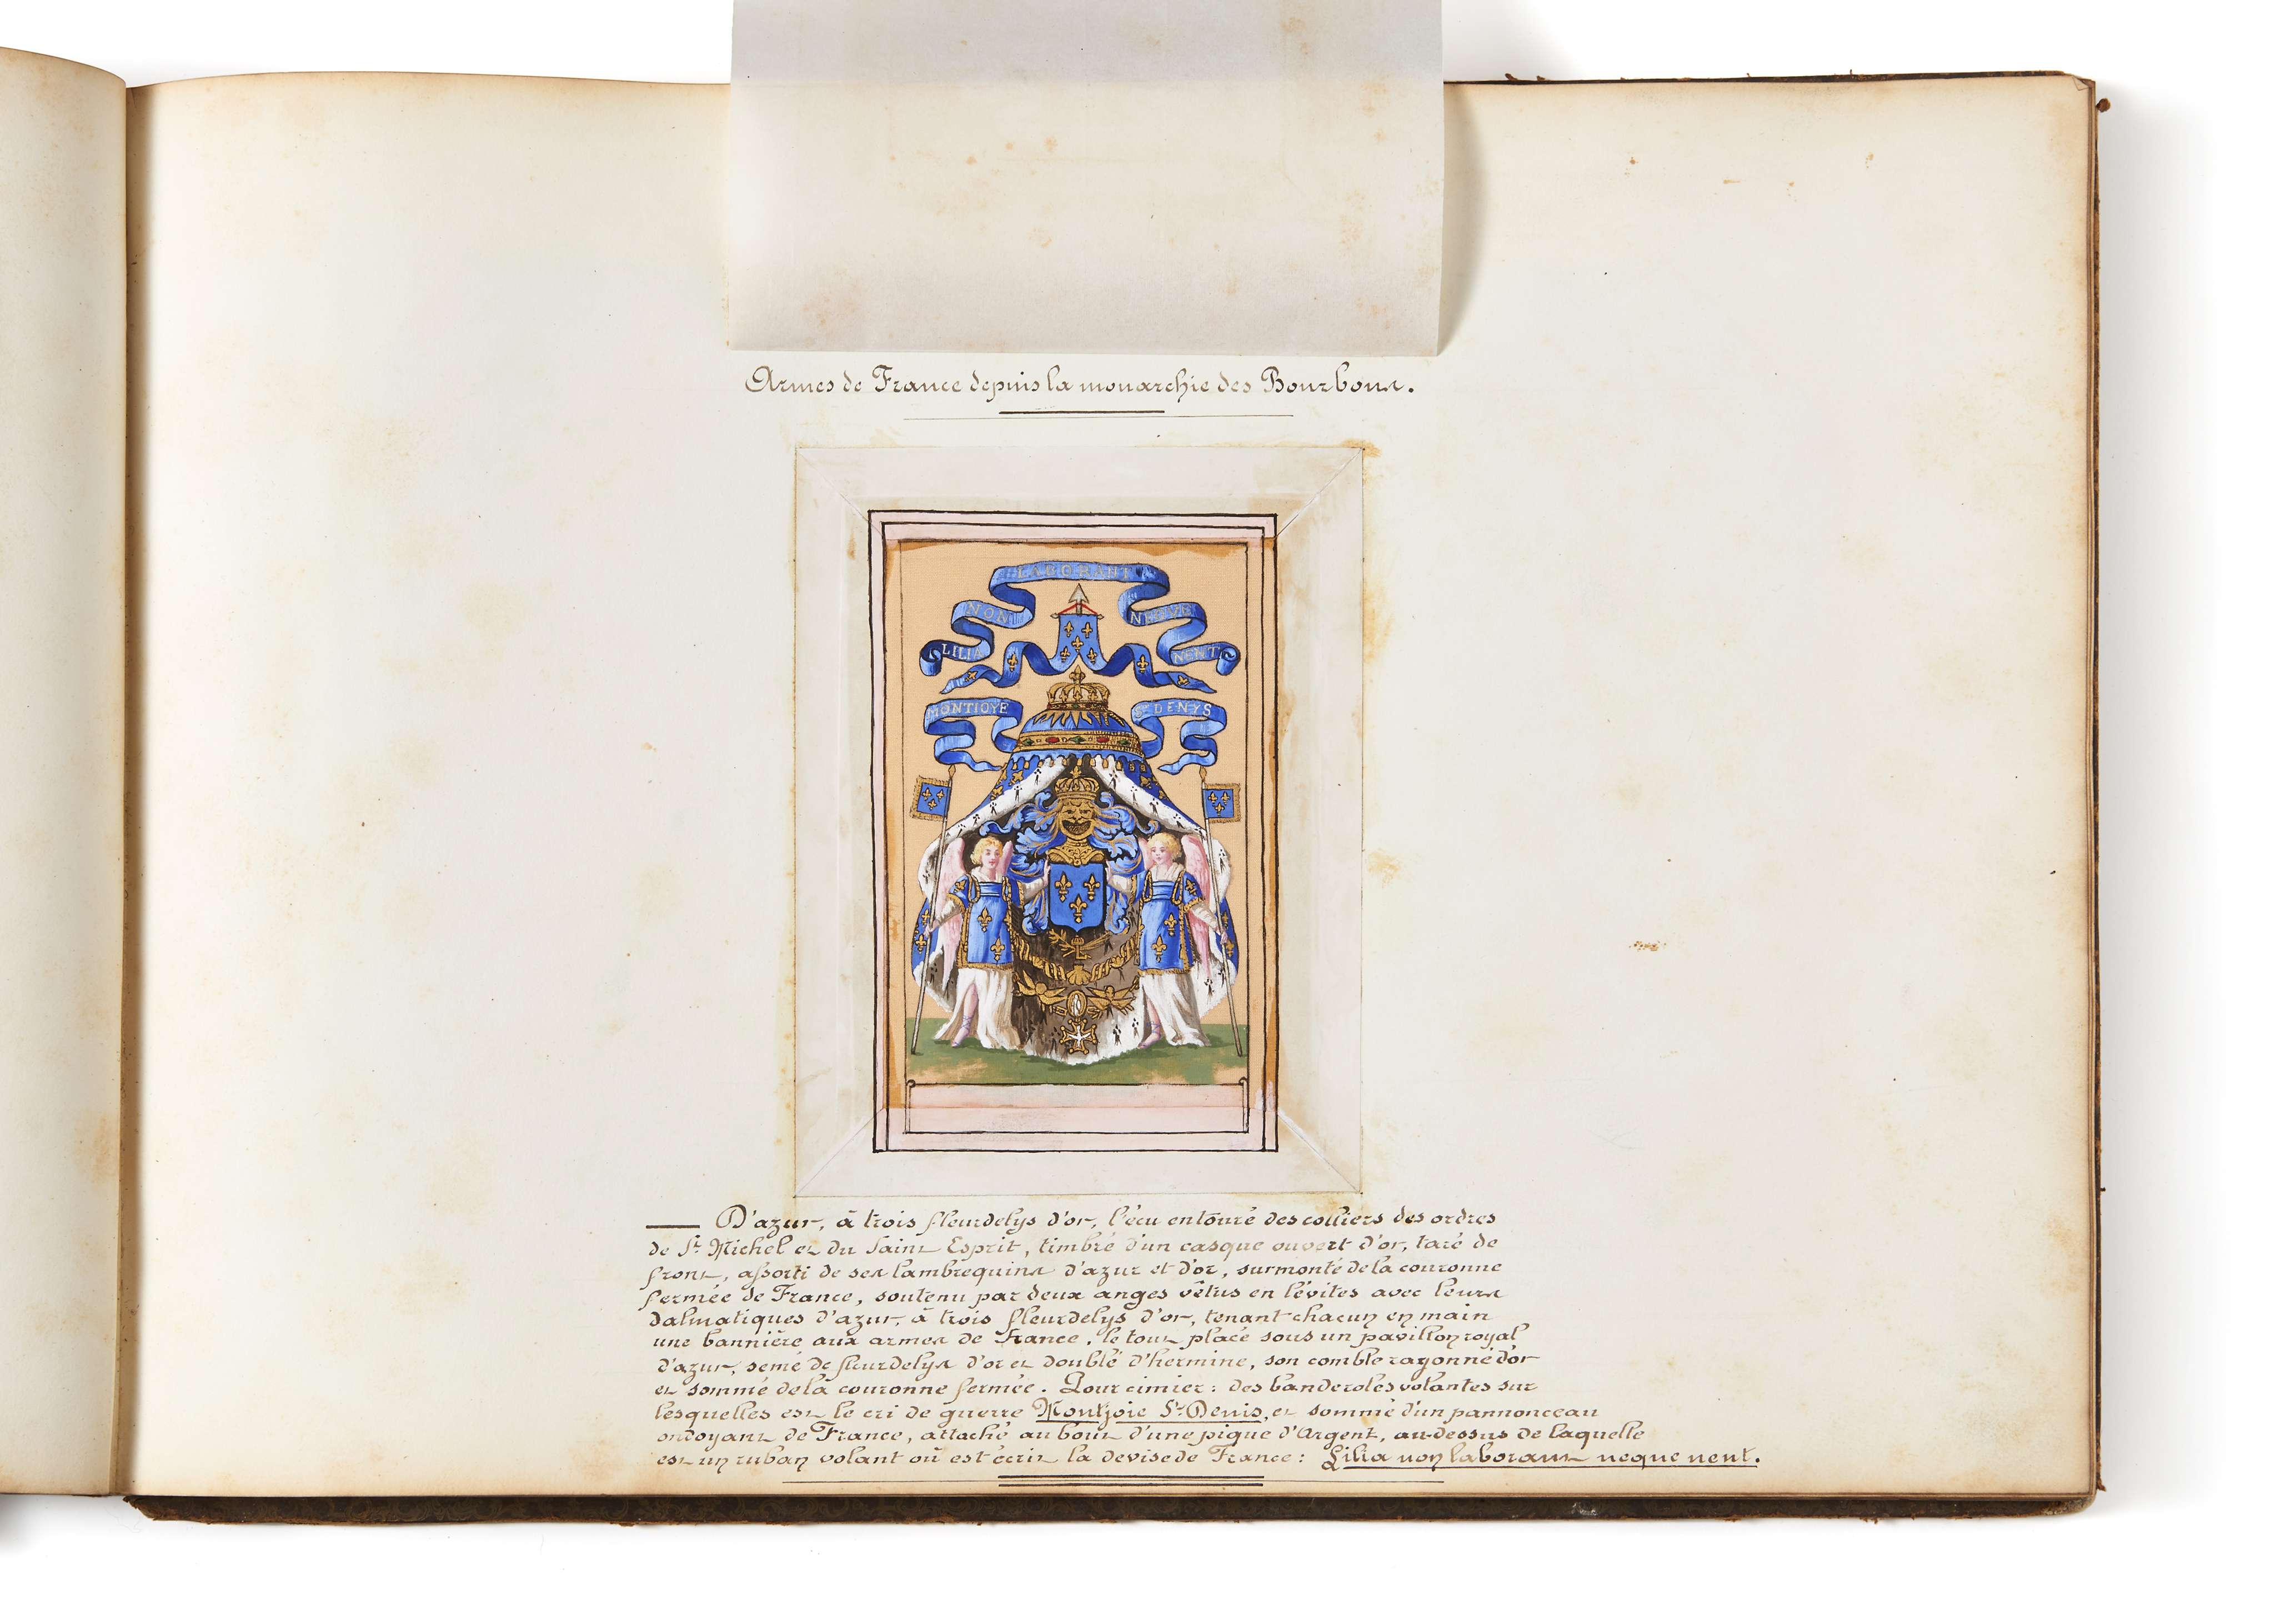 Armes de France depuis la monarchie des Bourbons.
LABORANT
NON
NEQUE
LILIA
NENT
MONTIOYE
St DENYS
D'azur, à trois fleurdelys d'or, l'écu entouré des colliers des ordres
de St. Michel et du Saint Esprit, timbré d'un casque ouvert d'or, taré de
front, assorti de ses lambrequins d'azur et d'or, surmonté de la couronne
fermée de France, soutenu par deux anges vêtus en lévites avec leurs
dalmatiques d'azur, à trois fleurdelys d'or, tenant chacun en main
une bannière aux armes de France, le tout placé sous un pavillon royal
d'azur, semé de fleurdelys d'or et doublé d'hermine, son comble rayonné d'or
et sommé de la couronne fermée. Pour cimier : des banderoles volantes sur
lesquelles est le cri de guerre Montjoie St. Denis, et sommé d'un pannonceau
ondoyant de France, attaché au bout d'une pique d'Argent, au-dessus de laquelle
est un ruban volant où est écrit la devise de France : Lilia non laborant neque nent.